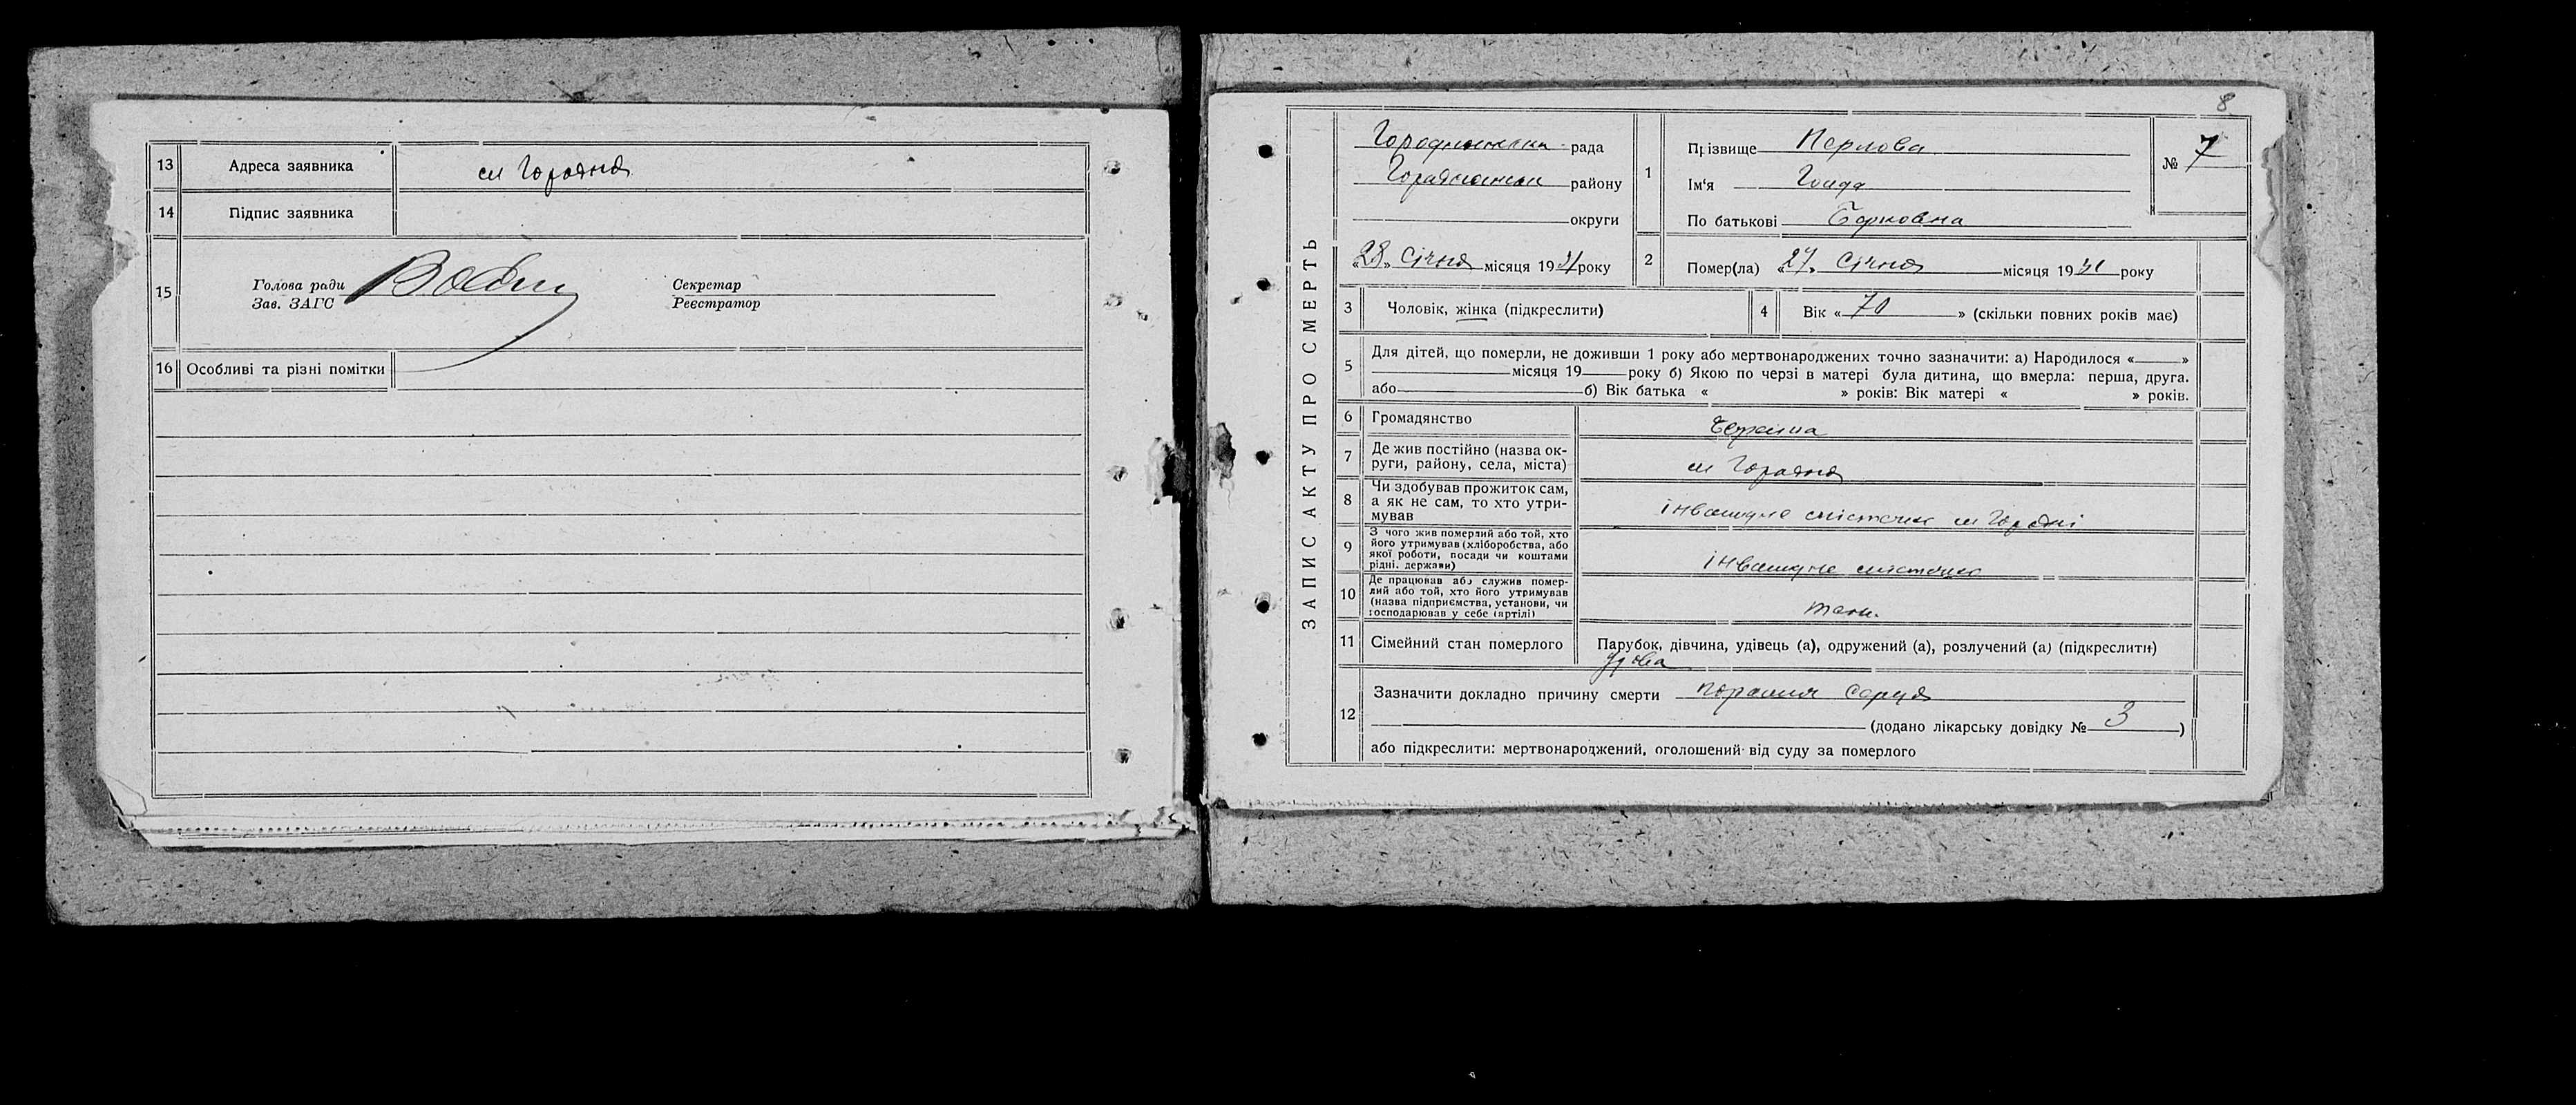 13 Адреса заявника см Городня
14 Підпис заявника
15 Голова ради
Зав. ЗАГС
Секретар
Реєстратор
16 Особливі та різні помітки
8
ЗАПИС АКТУ ПРО СМЕРТЬ
рада
району
округи
«28» Січня місяця 1931 року
1 Прізвище Перлова
Ім'я
По батькові Берковна
№ 7
2 Помер(ла) «27» Січня місяця 1931 року
3 Чоловік, жінка (підкреслити)
4 Вік « 70 » (скільки повних років має)
5 Для дітей, що померли, не доживши 1 року або мертвонароджених точно зазначити: а) Народилося « »
місяця 19 року б) Якою по черзі в матері була дитина, що вмерла: перша, друга.
або б) Вік батька « » років: Вік матері « » років.
6 Громадянство
7 Де жив постійно (назва ок-
руги, району, села, міста) см Городня
8 Чи здобував прожиток сам,
а як не сам, то хто утри-
мував
9 З чого жив померлий або той, хто
його утримував (хліборобства, або
якої роботи, посади чи коштами
рідні. держави)
10 Де працював або служив помер-
лий або той, хто його утримував
(назва підприємства, установи, чи
господарював у себе (артілі)
11 Сімейний стан померлого Парубок, дівчина, удівець (а), одружений (а), розлучений (а) (підкреслити)
удова
12 Зазначити докладно причину смерти пораліч серця
(додано лікарську довідку № 3 )
або підкреслити: мертвонароджений, оголошений від суду за померлого